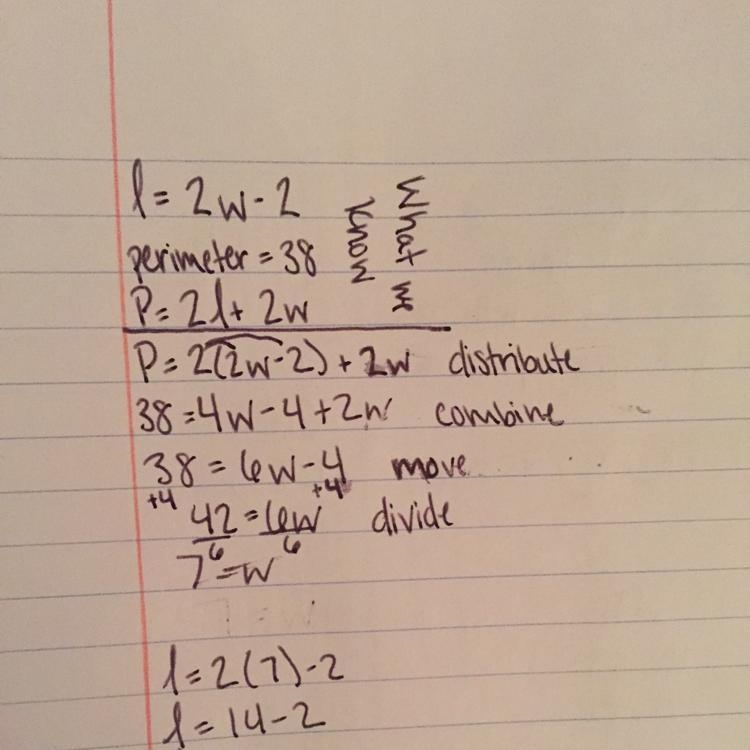 l = 2w - 2
perimeter = 38
P = 2l + 2w
What we
know
P = 2(2w - 2) + 2w distribute
38 = 4w - 4 + 2w combine
38 = 6w - 4 move
+4 +4
42 = 6w divide
6 6
7 = w
l = 2(7) - 2
l = 14 - 2